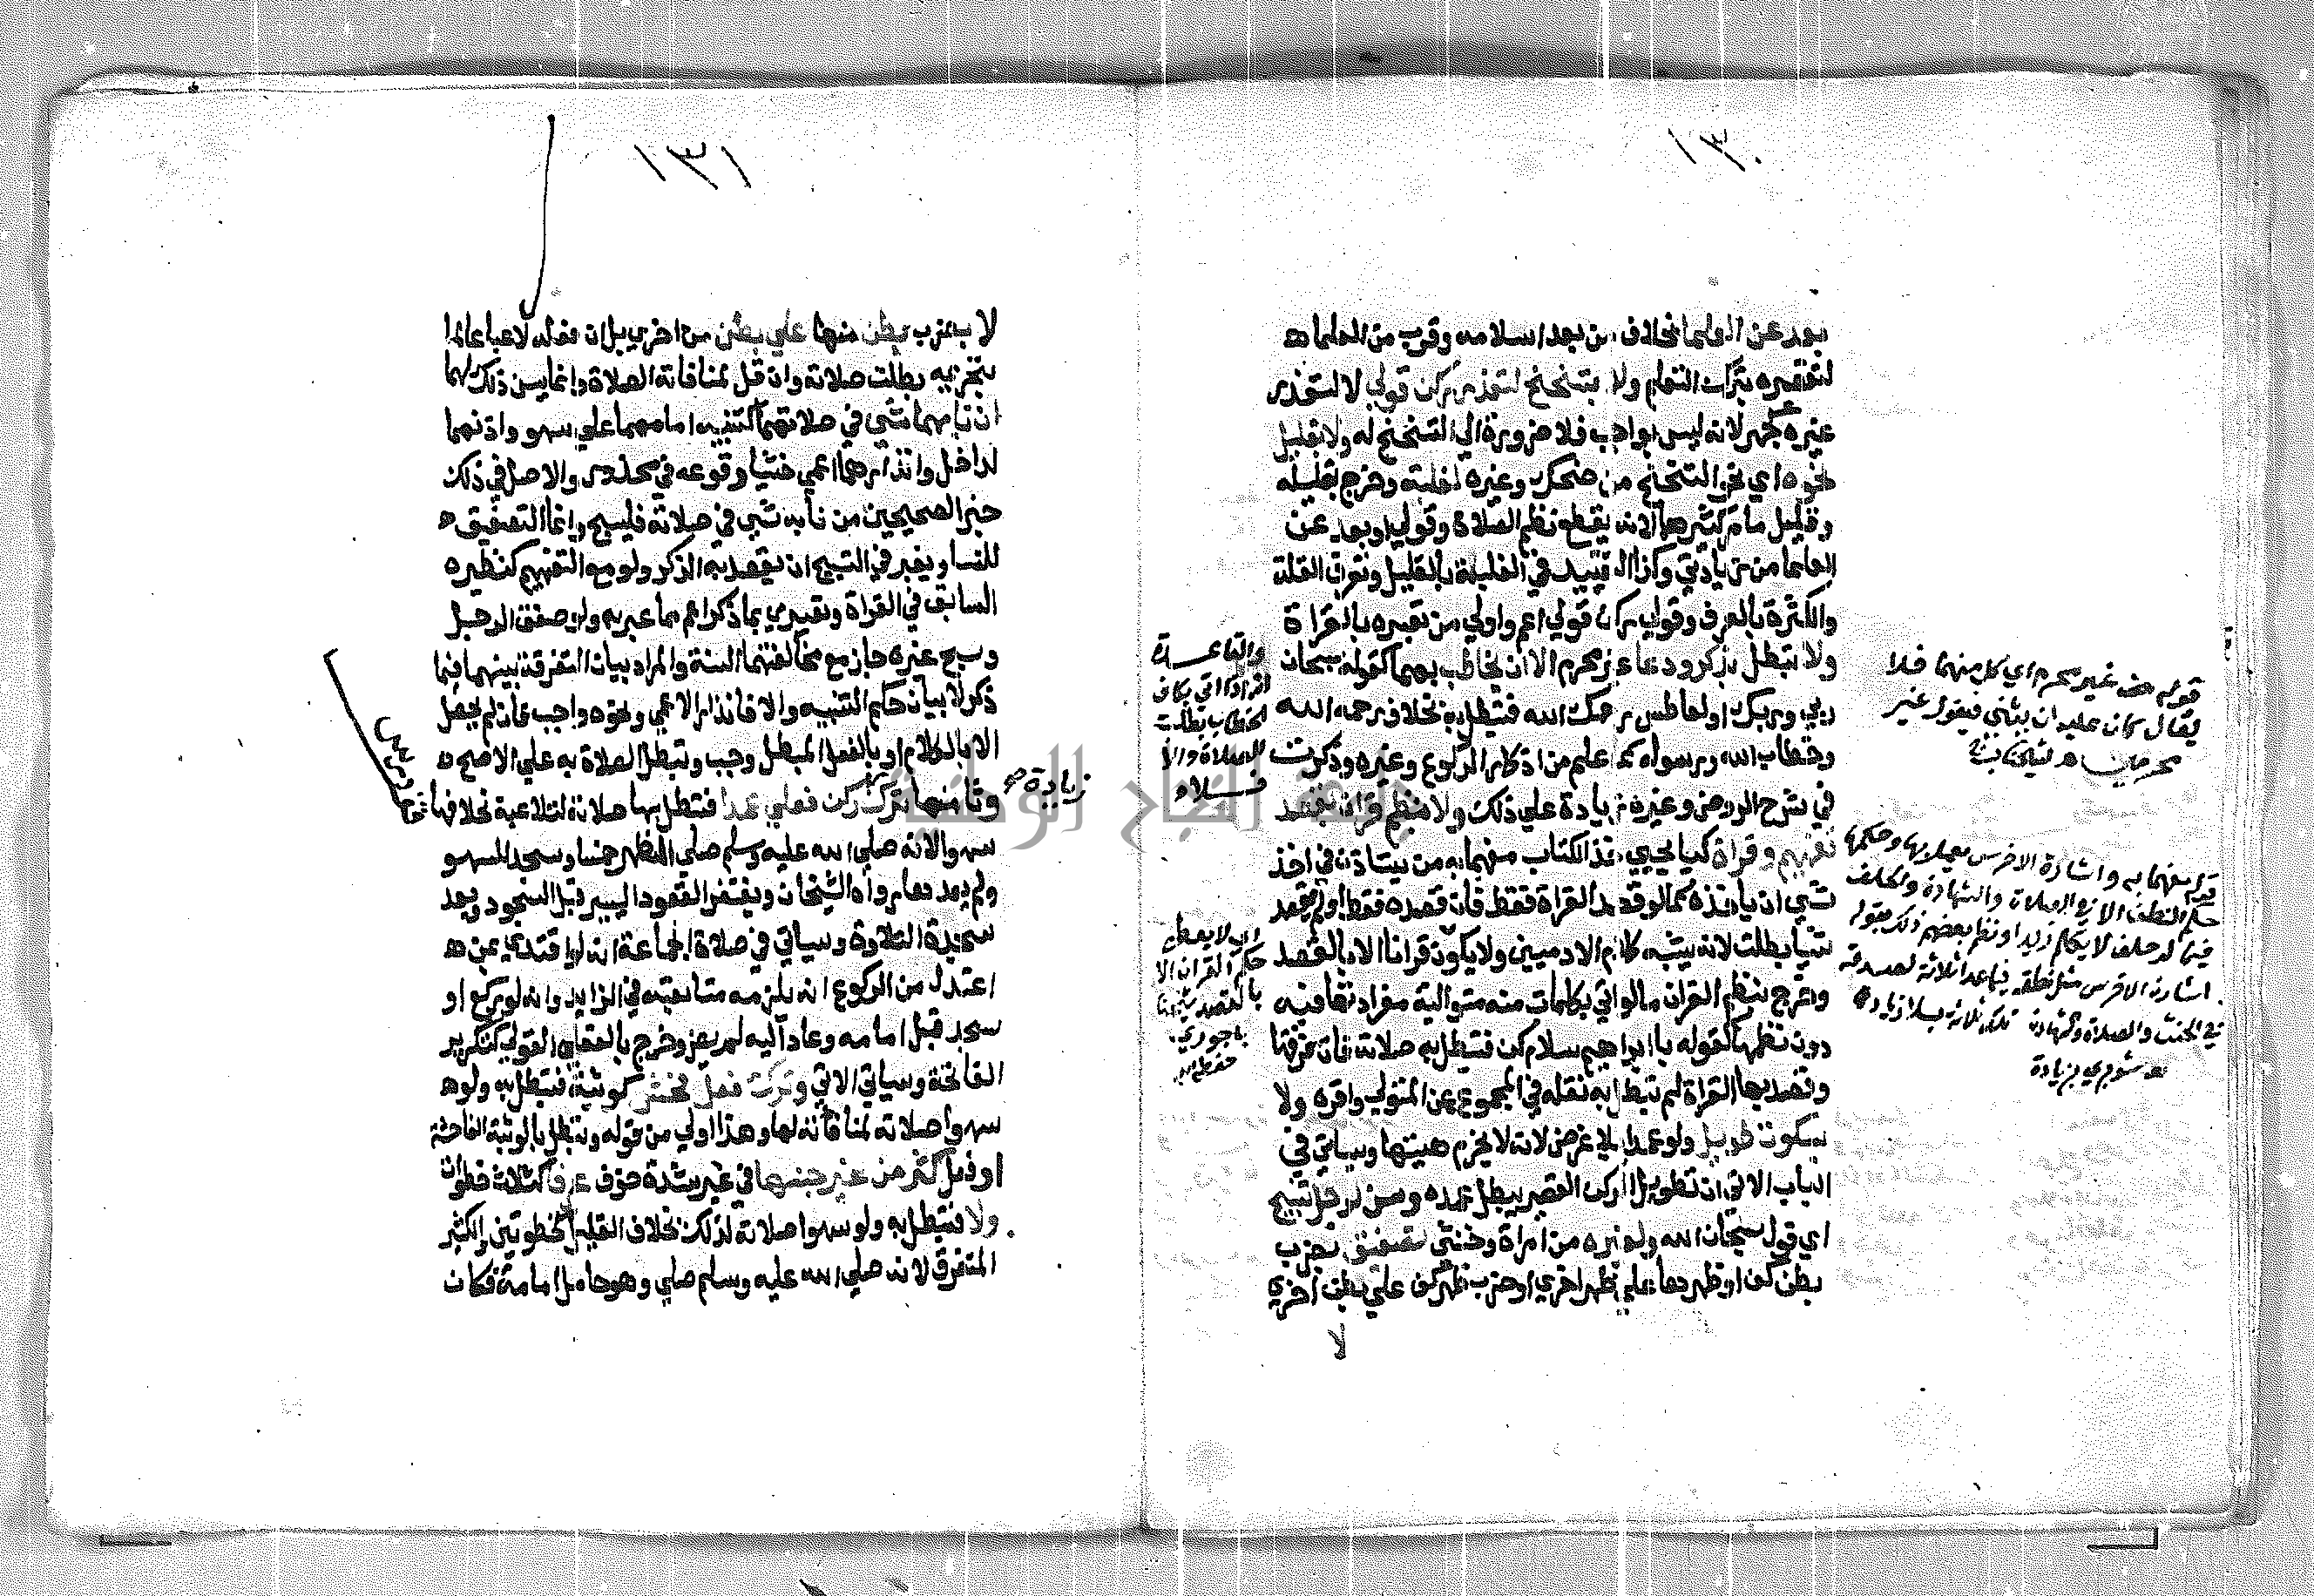 ١٣٠
بعد عن العلما بخلاف من بعد اسلامه وقرب من العلما
لتقصيره بترك التعلم ولا بتنحنح لتعذر ركن قولي لا لتعذر
غيره كجهر لانه ليس بواجب فلا ضرورة الي التنحنح له ولا بقليل
نحوه اي نحو التنحنح من ضحك وغيره لغلبة وخرج بقليله
وقليل ما مر كثيرهما لانه يقطع نظم الصلاة وقولي او بعد عن
العلما من زيادتي وكذا التقييد في الغلبة بالقليل وتعرف القلة
والكثرة بالعرف وقولي ركن قولي اعم واولي من تعبيره بالقراة
ولا تبطل بذكر ودعا غير محرم الا ان يخاطب بهما كقوله سبحان
ربي وربك او لعاطس رحمك الله فتبطل به بخلاف رحمه الله
وخطاب الله ورسوله كما علم من اذكار الركوع وغيره وذكرت
في شرح الروض وغيره زيادة علي ذلك ولا بنظم قران بقصد
تفهيم وقراة كيا يحيي خذ الكتاب مفهما به من يستاذن في اخذ
شي ان ياخذه كما لو قصد القراة فقط فان قصده فقط او لم يقصد
شيا بطلت لانه يشبه كلام الادميين ولا يكون قرانا الا بالقصد
وخرج بنظم القران ما لو اتي بكلمات منه متوالية مفرداتها فيه
دون نظمها كقوله يا ابراهيم سلام كن فتبطل به صلاته فان فرقها
وقصد بها القراة لم تبطل به نقله في المجموع عن المتولي واقره ولا
بسكوت طويل ولو عمدا بلا غرض لانه لا يخرم هيئتها وسياتي في
الباب الاتي ان تطويل الركن القصير يبطل عمده وسن لرجل تسبيح
اي قول سبحان الله ولغيره من امراة وخنثي تصفيق بضرب
بطن كف او ظهرها علي ظهر اخري او ضرب ظهر كف علي بطن اخري
لا
قوله غير محرم اي كل منهما فلا
يقال كان عليه ان يثني فيقول غير
محرمين
قوله مفهما به واشارة الاخرس
حكم النطق الا في الصلاة والشهادة والحلف
فيما لو حلف لا يكلم زيدا ونظم بعضهم ذلك بقوله
اشارة الاخرس مثل نطقه فيما عدا ثلاثة لصدقه
في الحنث والصلاة والشهادة تلك ثلاثة بلا زيادة
والقاعدة
بكاف
الخطاب بطلت
الصلاة والا
فلا
اي لا يعطي
حكم القران الا
بالقصد
١٣١
لا بضرب بطن منها علي بطن من اخري بل ان فعله لاعبا عالما
بتحريمه بطلت صلاته وان قل لمنافاته الصلاة وانما يسن ذلك لهما
ان نابهما شي في صلاتهما كتنبيه امامهما علي سهو واذنهما
لداخل وانذارهما اعمي خشيا وقوعه في محذور والاصل في ذلك
خبر الصحيحين من نابه شي في صلاته فليسبح وانما التصفيق
للنسا ويعتبر في التسبيح ان يقصد به الذكر ولو مع التفهيم كنظيره
السابق في القراة وتعبيري بما ذكر اعم مما عبر به ولو صفق الرجل
وسبح غيره جاز مع مخالفتهما السنة والمراد بيان التفرقة بينهما فيما
ذكر لا بيان حكم التنبيه والا فانذار الاعمي ونحوه واجب فان لم يحصل
الا بالكلام او بالفعل المبطل وجب وتبطل الصلاة به علي الاصح
وثامنها ترك ركن فعلي عمدا فتبطل بها صلاته لتلاعبه بخلافها
سهوا لانه صلي الله عليه وسلم صلي الظهر خمسا وسجد للسهو
ولم يعدها رواه الشيخان ويغتفر القعود اليسير قبل السجود وبعد
سجدة التلاوة وسياتي في صلاة الجماعة انه لو اقتدي بمن
اعتدل من الركوع انه يلزمه متابعته في الزايد وانه لو ركع او
سجد قبل امامه وعاد اليه لم يضر وخرج بالفعلي القولي كتكرير
الفاتحة وسياتي الاتي وترك فعل فحش كوثبة فتبطل به ولو
سهوا صلاته لمنافاته لها وهذا اولي من قوله وتبطل بالوثبة الفاحشة
او فعل كثر من غير جنسها في غير شدة خوف عرفا كثلاث خطوات
ولا فتبطل به ولو سهوا صلاته لذلك بخلاف القليل كخطوتين والكثير
المتفرق لانه صلي الله عليه وسلم صلي وهو حامل امامة فكان
زيادة